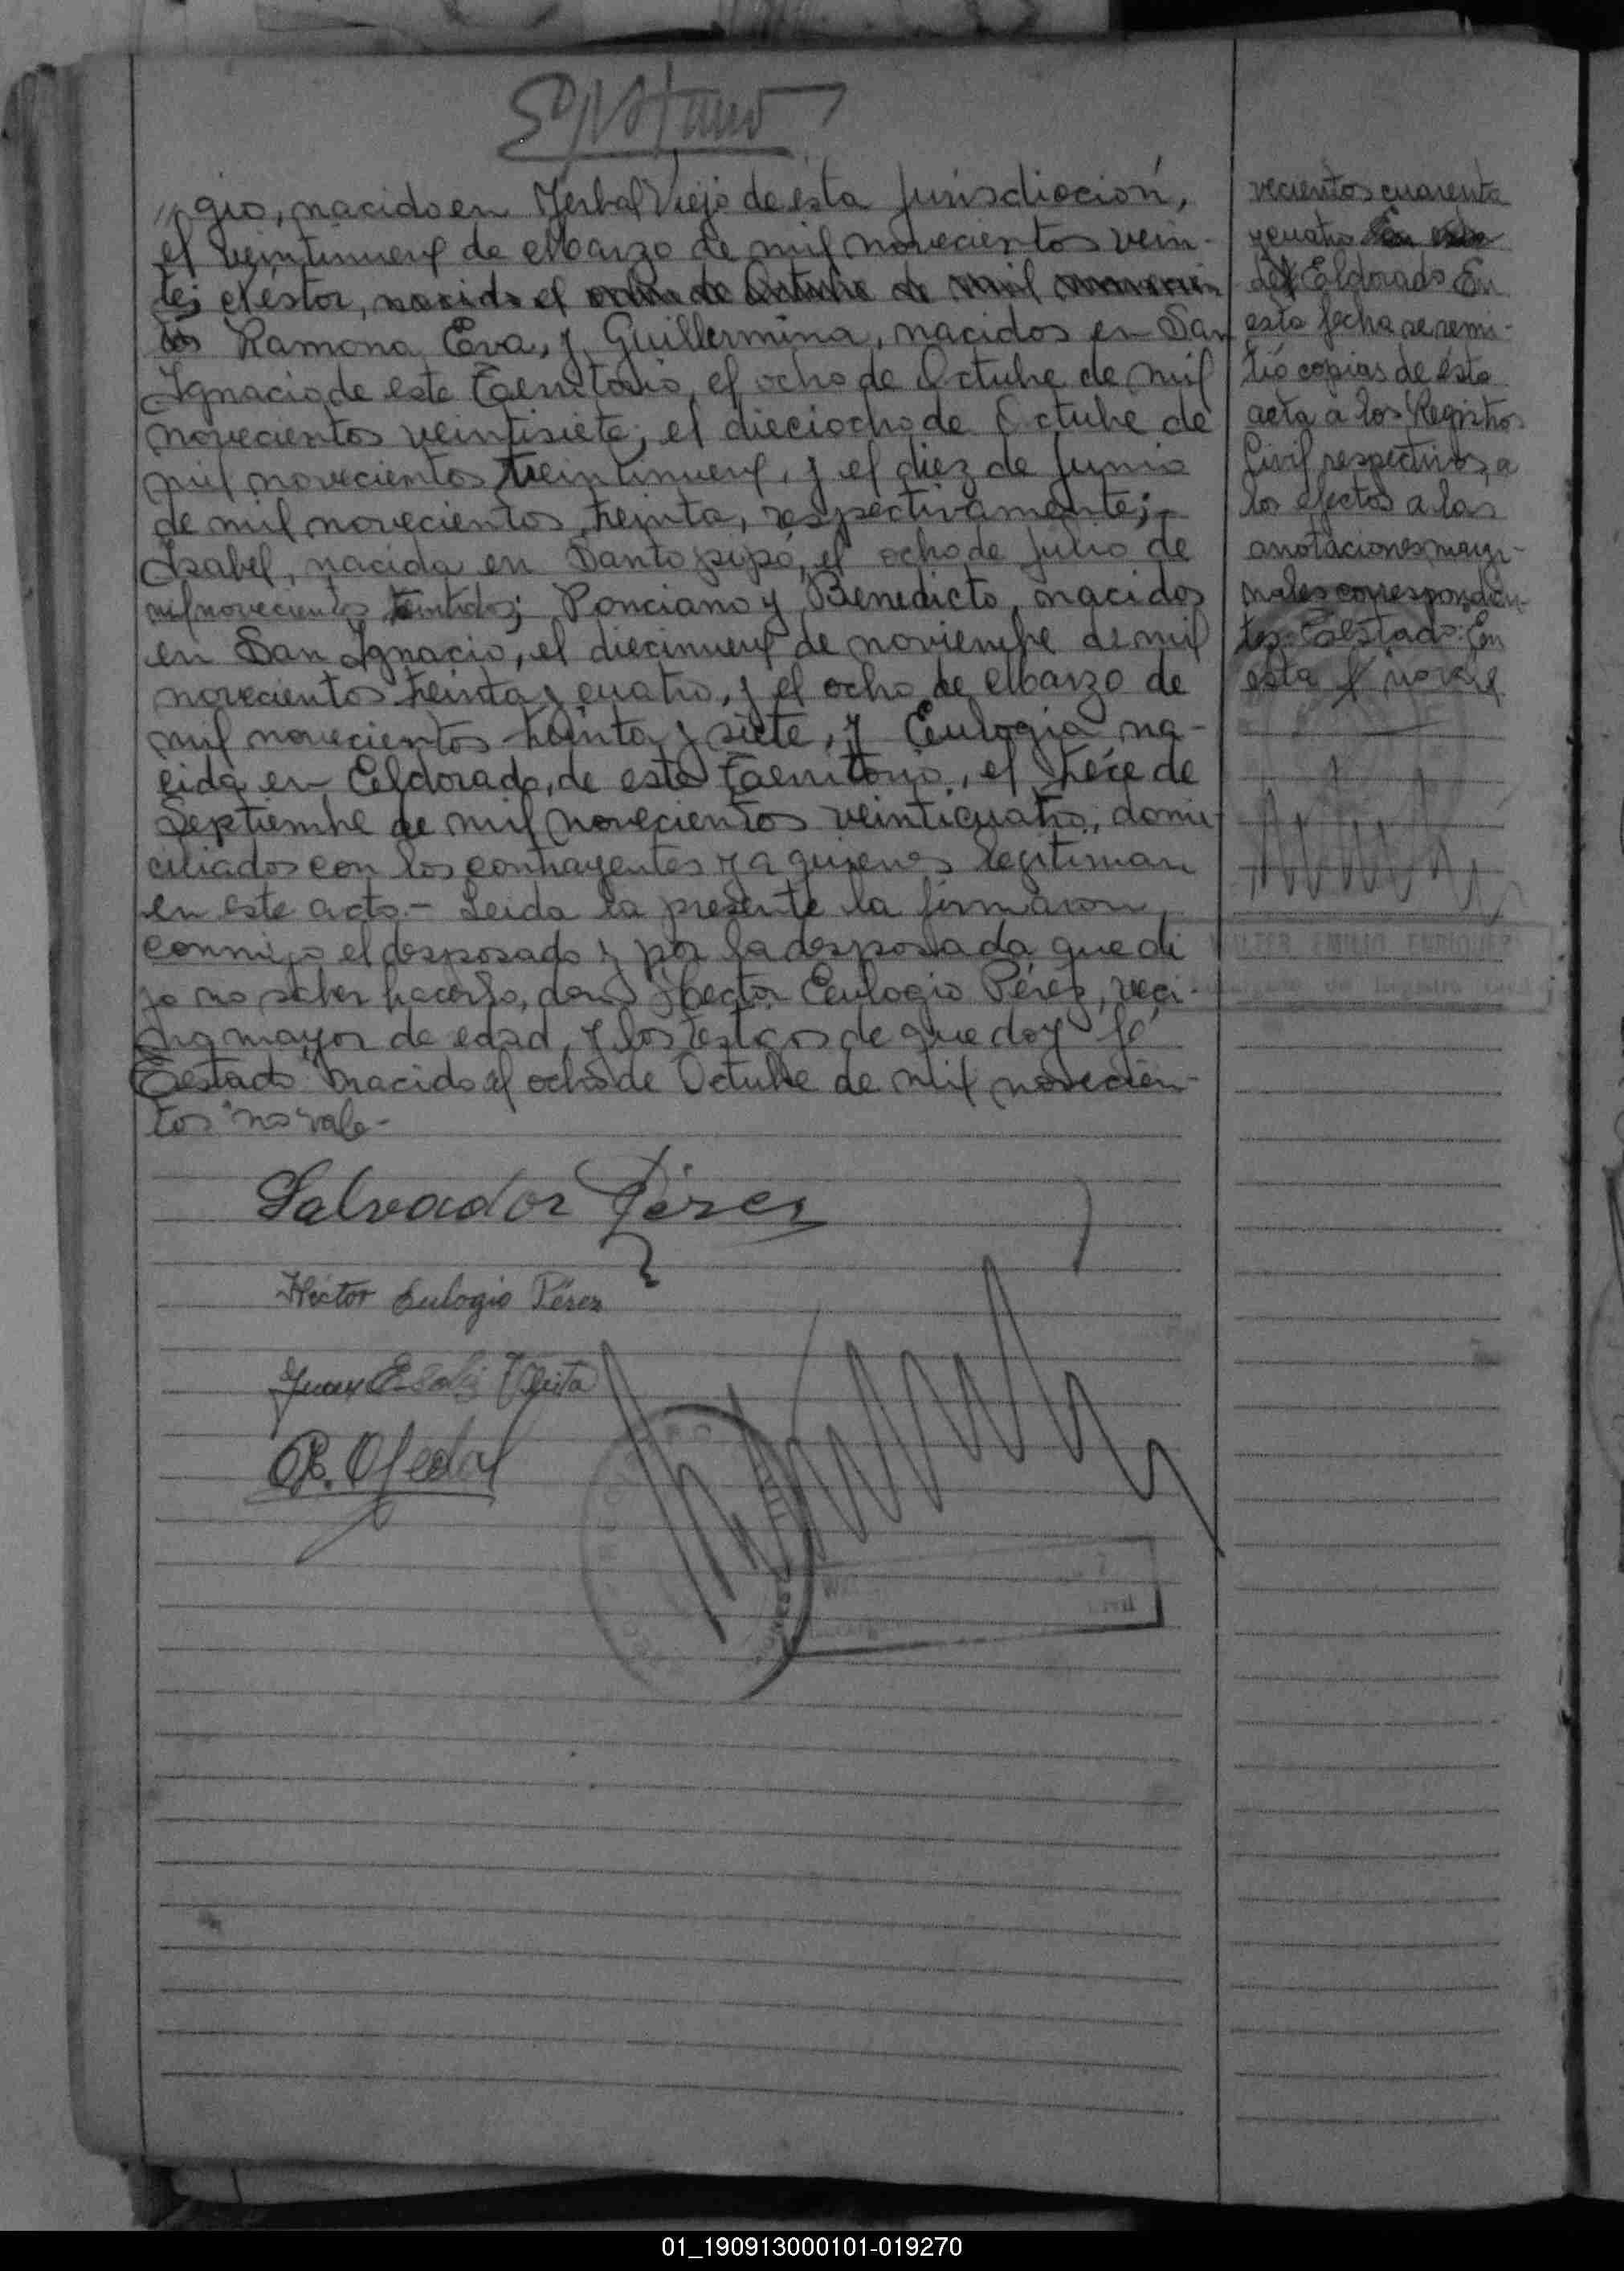 gio, nacido en Yerbal Viejo de esta Jurisdicción,
el veintinueve de Marzo de mil novecientos vein-
te; Néstor, nacido el ocho de Octubre de mil novecien
tos Ramona Eva, y Guillermina, nacidos en San
Ignacio de este Territorio, el ocho de Octubre de mil
novecientos veintisiete, el dieciocho de Octubre de
mil novecientos veintinueve, y el diez de Junio
de mil novecientos treinta, respectivamente;-
Isabel, nacida en Santo pipó, el ocho de Julio de
mil novecientos treintidos; Ponciano y Benedicto, nacidos
en San Ignacio, el diecinueve de noviembre de mil
novecientos treinta y cuatro, y el ocho de Marzo de
mil novecientos treinta y siete, y Eulogia na-
cida en Eldorado, de este Territorio, el trece de
Septiembre de mil novecientos veinticuatro, domi-
ciliados con los contrayentes y a quienes legitiman
en este acto.- Leida la presente la firmaron,
conmigo el desposado y por la desposada que di
jo no saber hacerlo, don Hector Eulogio Pérez, veci-
no mayor de edad, y los testigos de que doy fé
Testado "nacido el ocho de Octubre de mil novecien-
tos" no vale-
Salvador Pérez
Héctor Eulogio Pérez
Juan
R. Ojeda
vecientos cuarenta
y cuatro
del Eldorado En
esta fecha se remi-
tió copias de ésta
acta a los Registros
Civil respectivos, a
los efectos a las
anotaciones margi-
nales correspondien-
tes. Testado: En
esta no vale
WALTER EMILIO ENRIQUEZ
Encargado de Registro Civil
Civil
01_190913000101-019270